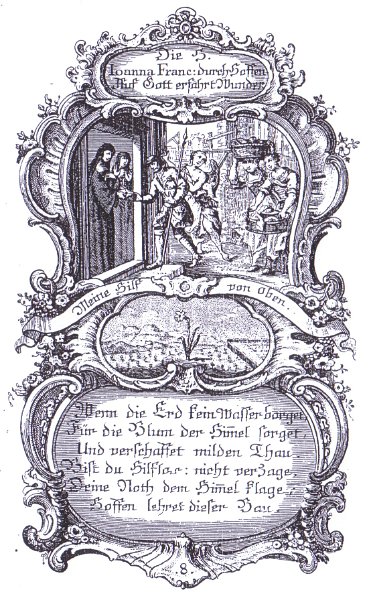 Die H.
Ioanna Franc: durch Hoffen
Auf Gott erfahrt Wunder
Meine Hilf von Oben.
Wenn die Erd kein Wasser borget
Für die Blum der Him̄el sorget,
Und verschaffet milden Thau
Bist du Hilfloс: nicht verzage
Deine Noth dem Him̄el klage,
Hoffen lehret dieser Bau.
8.